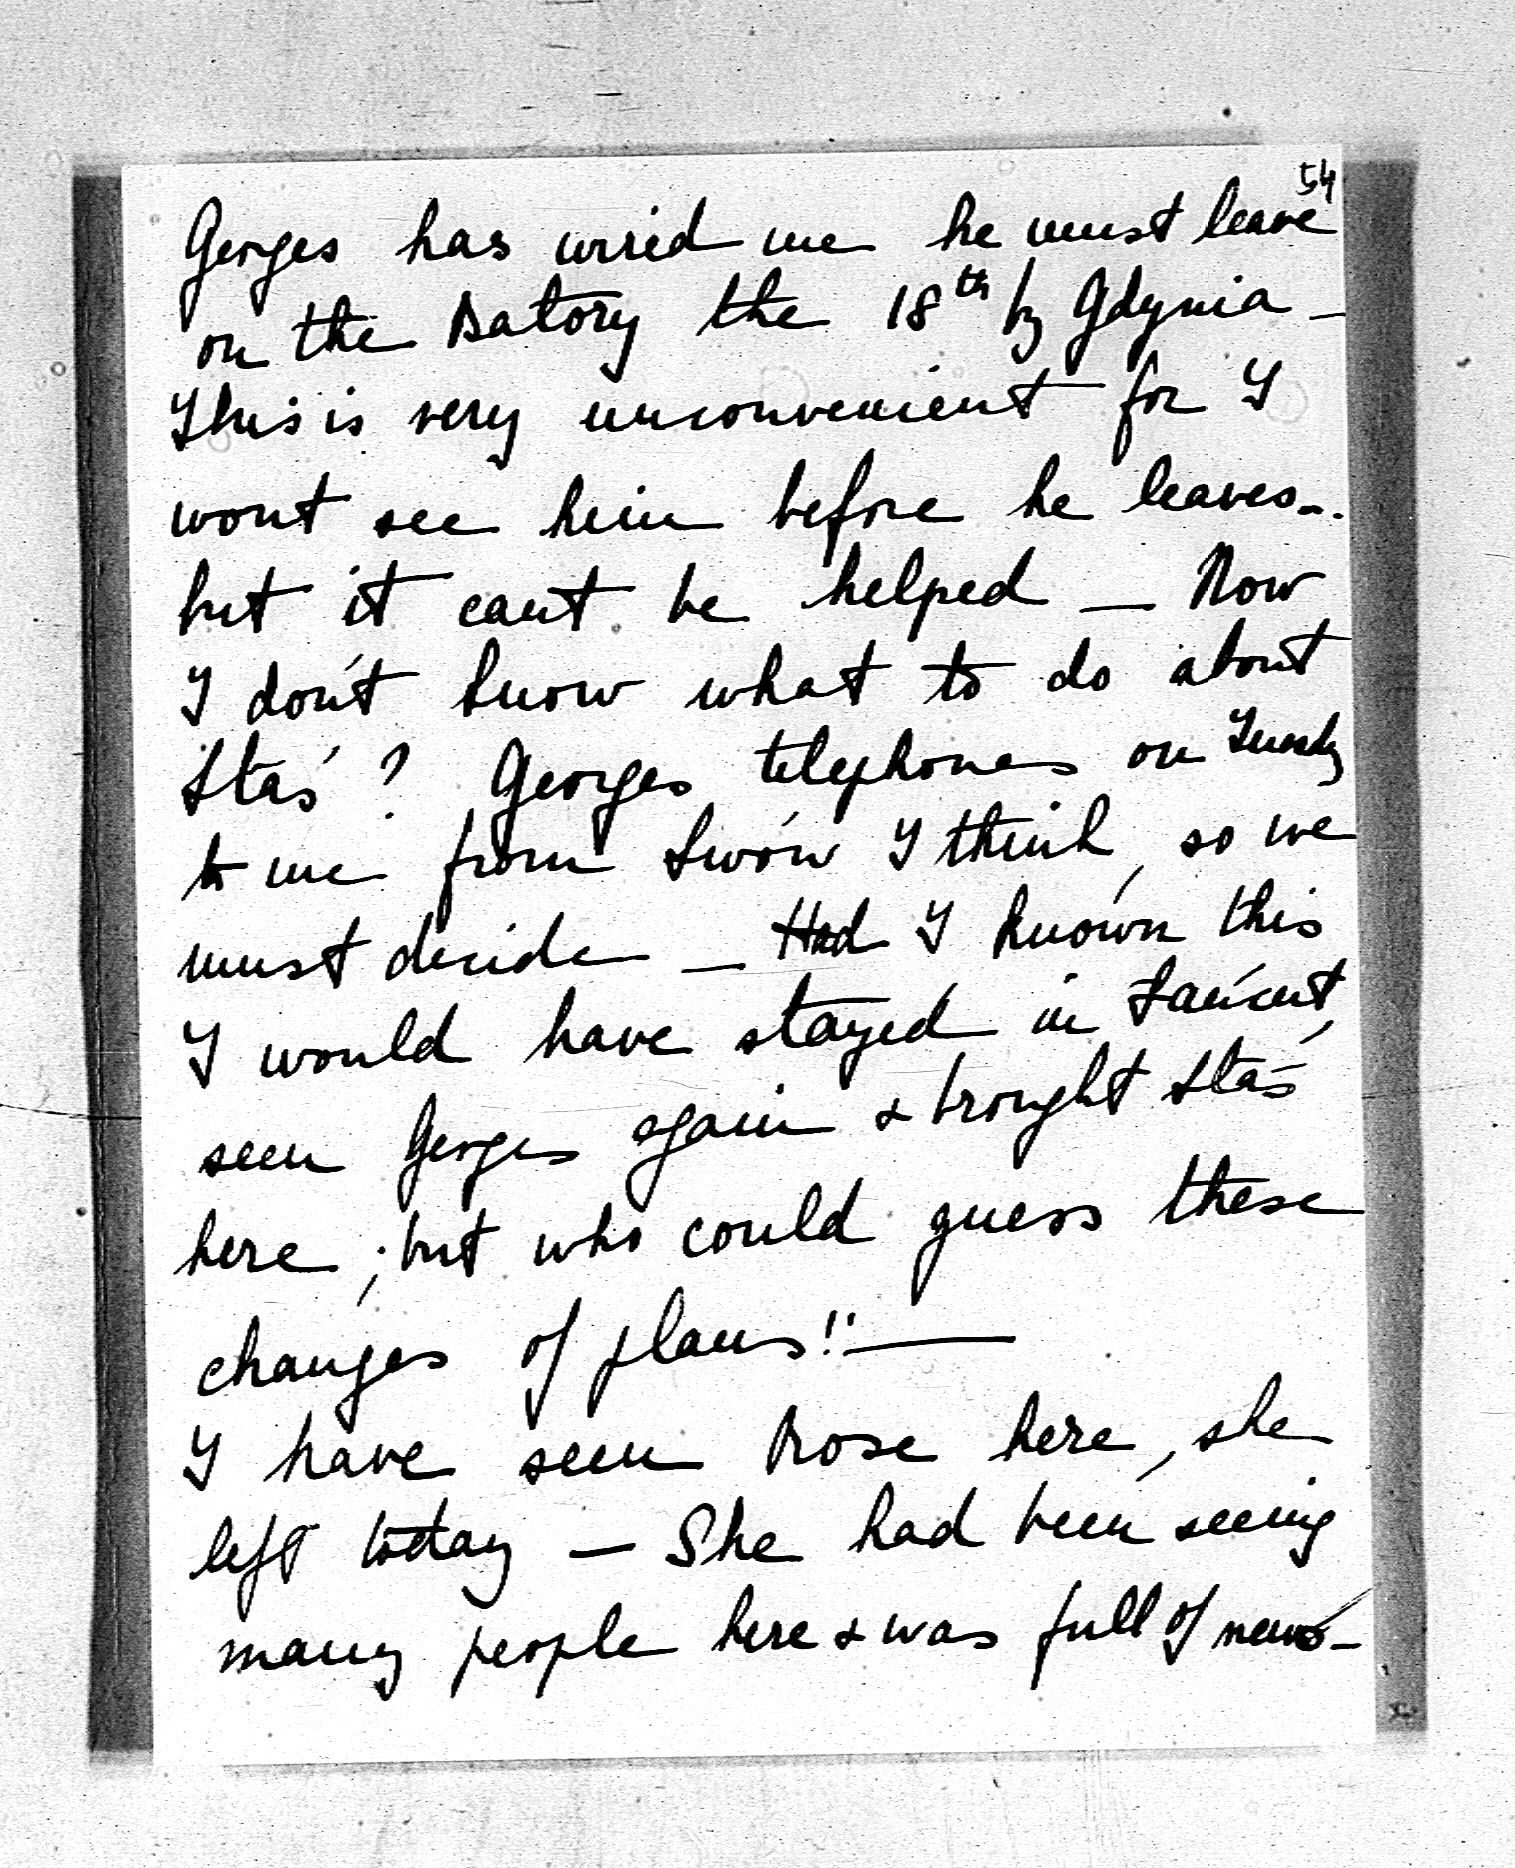 54
Georges has wired me he must leave
on the Batory the 18th by Gdynia —
This is very unconvenient for I
wont see him before he leaves -.
but it cant be helped — Now
I don't know what to do about
Staś ? Georges telephones on Tuesdy
to me from Lwów I think, so we
must decide — Had I known this
I would have stayed in Łańcut,
seen Georges again & brought Staś
here ; but who could guess these
changes of plans!! —
I have seen Rose here, she
left today — She had been seeing
many people here & was full of news —